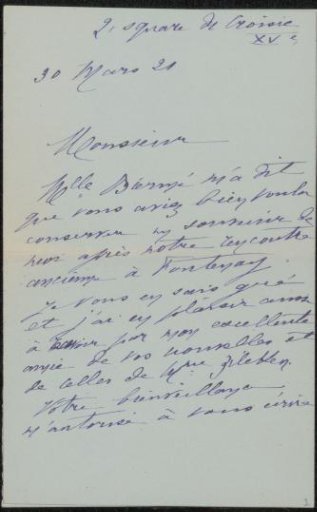 2, square de Croisic
XVe
30 Mars 21
Monsieur
Mlle m'a dit
que vous aviez bien voulu
conserver un souvenir de
moi après notre rencontre
ancienne à Fontenay.
Je vous en sais gré
et j'ai eu plaisir aussi
à avoir par mon excellente
amie de vos nouvelles et
de celles de Mme
Votre bienveillance
m'autorise à vous écrire